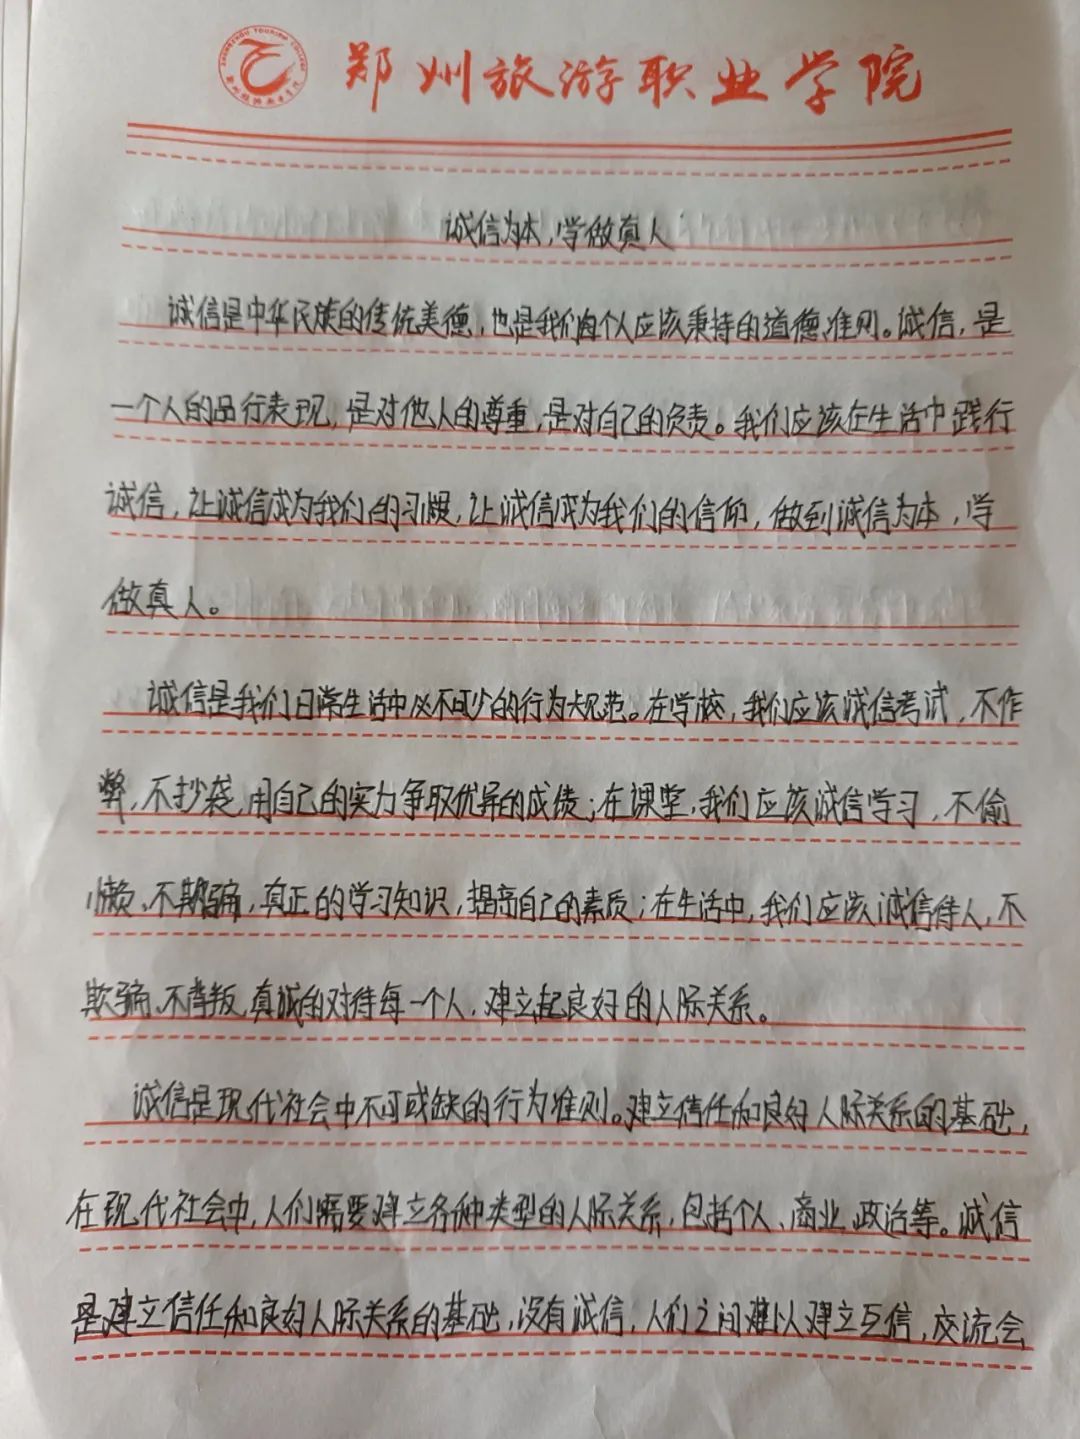 郑州旅游职业学院
诚信为本,学做真人
诚信是中华民族的传统美德,也是我们每个人应该秉持的道德准则。诚信,是
一个人的品行表现,是对他人的尊重,是对自己的负责。我们应该在生活中践行
诚信,让诚信成为我们的习惯,让诚信成为我们的信仰,做到诚信为本,学
做真人。
诚信是我们日常生活中必不可少的行为规范。在学校,我们应该诚信考试,不作
弊,不抄袭,用自己的实力争取优异的成绩;在课堂,我们应该诚信学习,不偷
懒、不欺骗,真正的学习知识,提高自己的素质;在生活中,我们应该诚信待人,不
欺骗、不背叛,真诚的对待每一个人,建立起良好的人际关系。
诚信是现代社会中不可或缺的行为准则。建立信任和良好人际关系的基础,
在现代社会中,人们需要建立各种类型的人际关系,包括个人、商业、政治等。诚信
是建立信任和良好人际关系的基础,没有诚信,人们之间难以建立互信,交流会